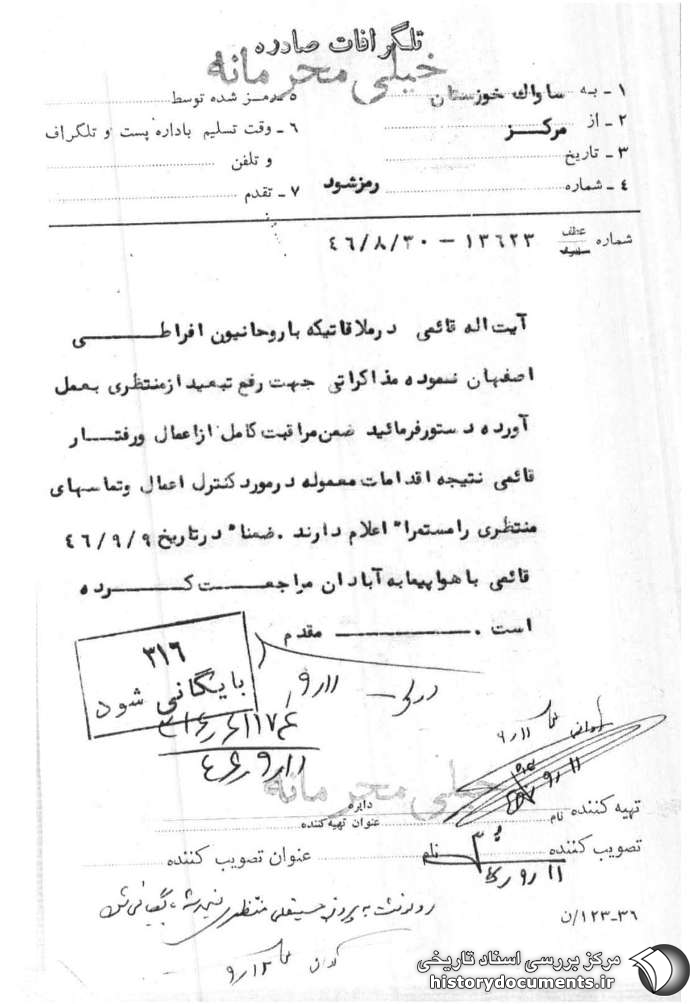 تلگرافات صادره
خیلی محرمانه
۱ - به ساواک خوزستان
۲ - از مرکز
۳ - تاریخ
۴ - شماره رمزشود
۵ - رمز شده توسط
۶ - وقت تسلیم باداره پست و تلگراف
و تلفن
۷ - تقدم
شماره عطف ۱۳۶۲۳ - ۴۶/۸/۳۰
آیت اله قائمی درملاقاتیکه باروحانیون افراطی
اصفهان نموده مذاکراتی جهت رفع تبعید ازمنتظری بعمل
آورده دستورفرمائید ضمن مراقبت کامل ازاعمال ورفتار
قائمی نتیجه اقدامات معموله درمورد کنترل اعمال وتماسهای
منتظری رامستمرا" اعلام دارند . ضمنا" درتاریخ ۴۶/۹/۹
قائمی باهواپیمابه آبادان مراجعت کرده
است . مقدم
۳۱۶
بایگانی شود
۱۱ر۹
۴۶ر۹ر۱۱
خیلی محرمانه
تهیه کننده نام
دایره
عنوان تهیه کننده
تصویب کننده نام عنوان تصویب کننده
۱۱ر۹ر۴۶
رونوشت به پرونده حسینعلی منتظری ضمیمه شد، بایگانی شود
۱۲ر۹
۳۶-۱۲۳/ن
مرکز بررسی اسناد تاریخی
historydocuments.ir